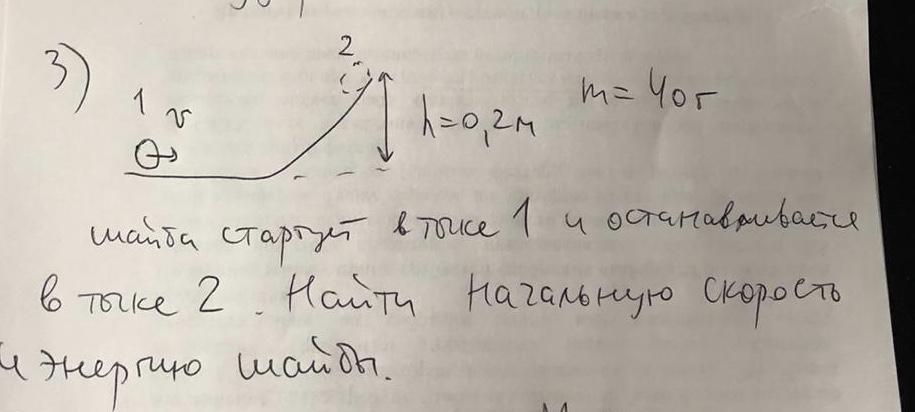 3)
2
1 v
h=0,2м
m=40г
шайба стартует в точке 1 и останавливается
в точке 2. Найти начальную скорость
и энергию шайбы.